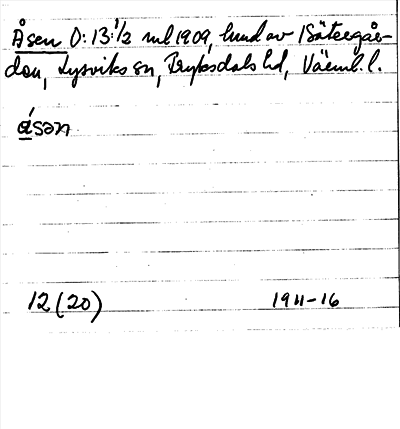 Åsen D: 13:1/2 ml 1909, lund av Sätergår-
den, Lysviks sn, Fryksdals hd, Värml. l.
åsən
12 (20) 1911-16